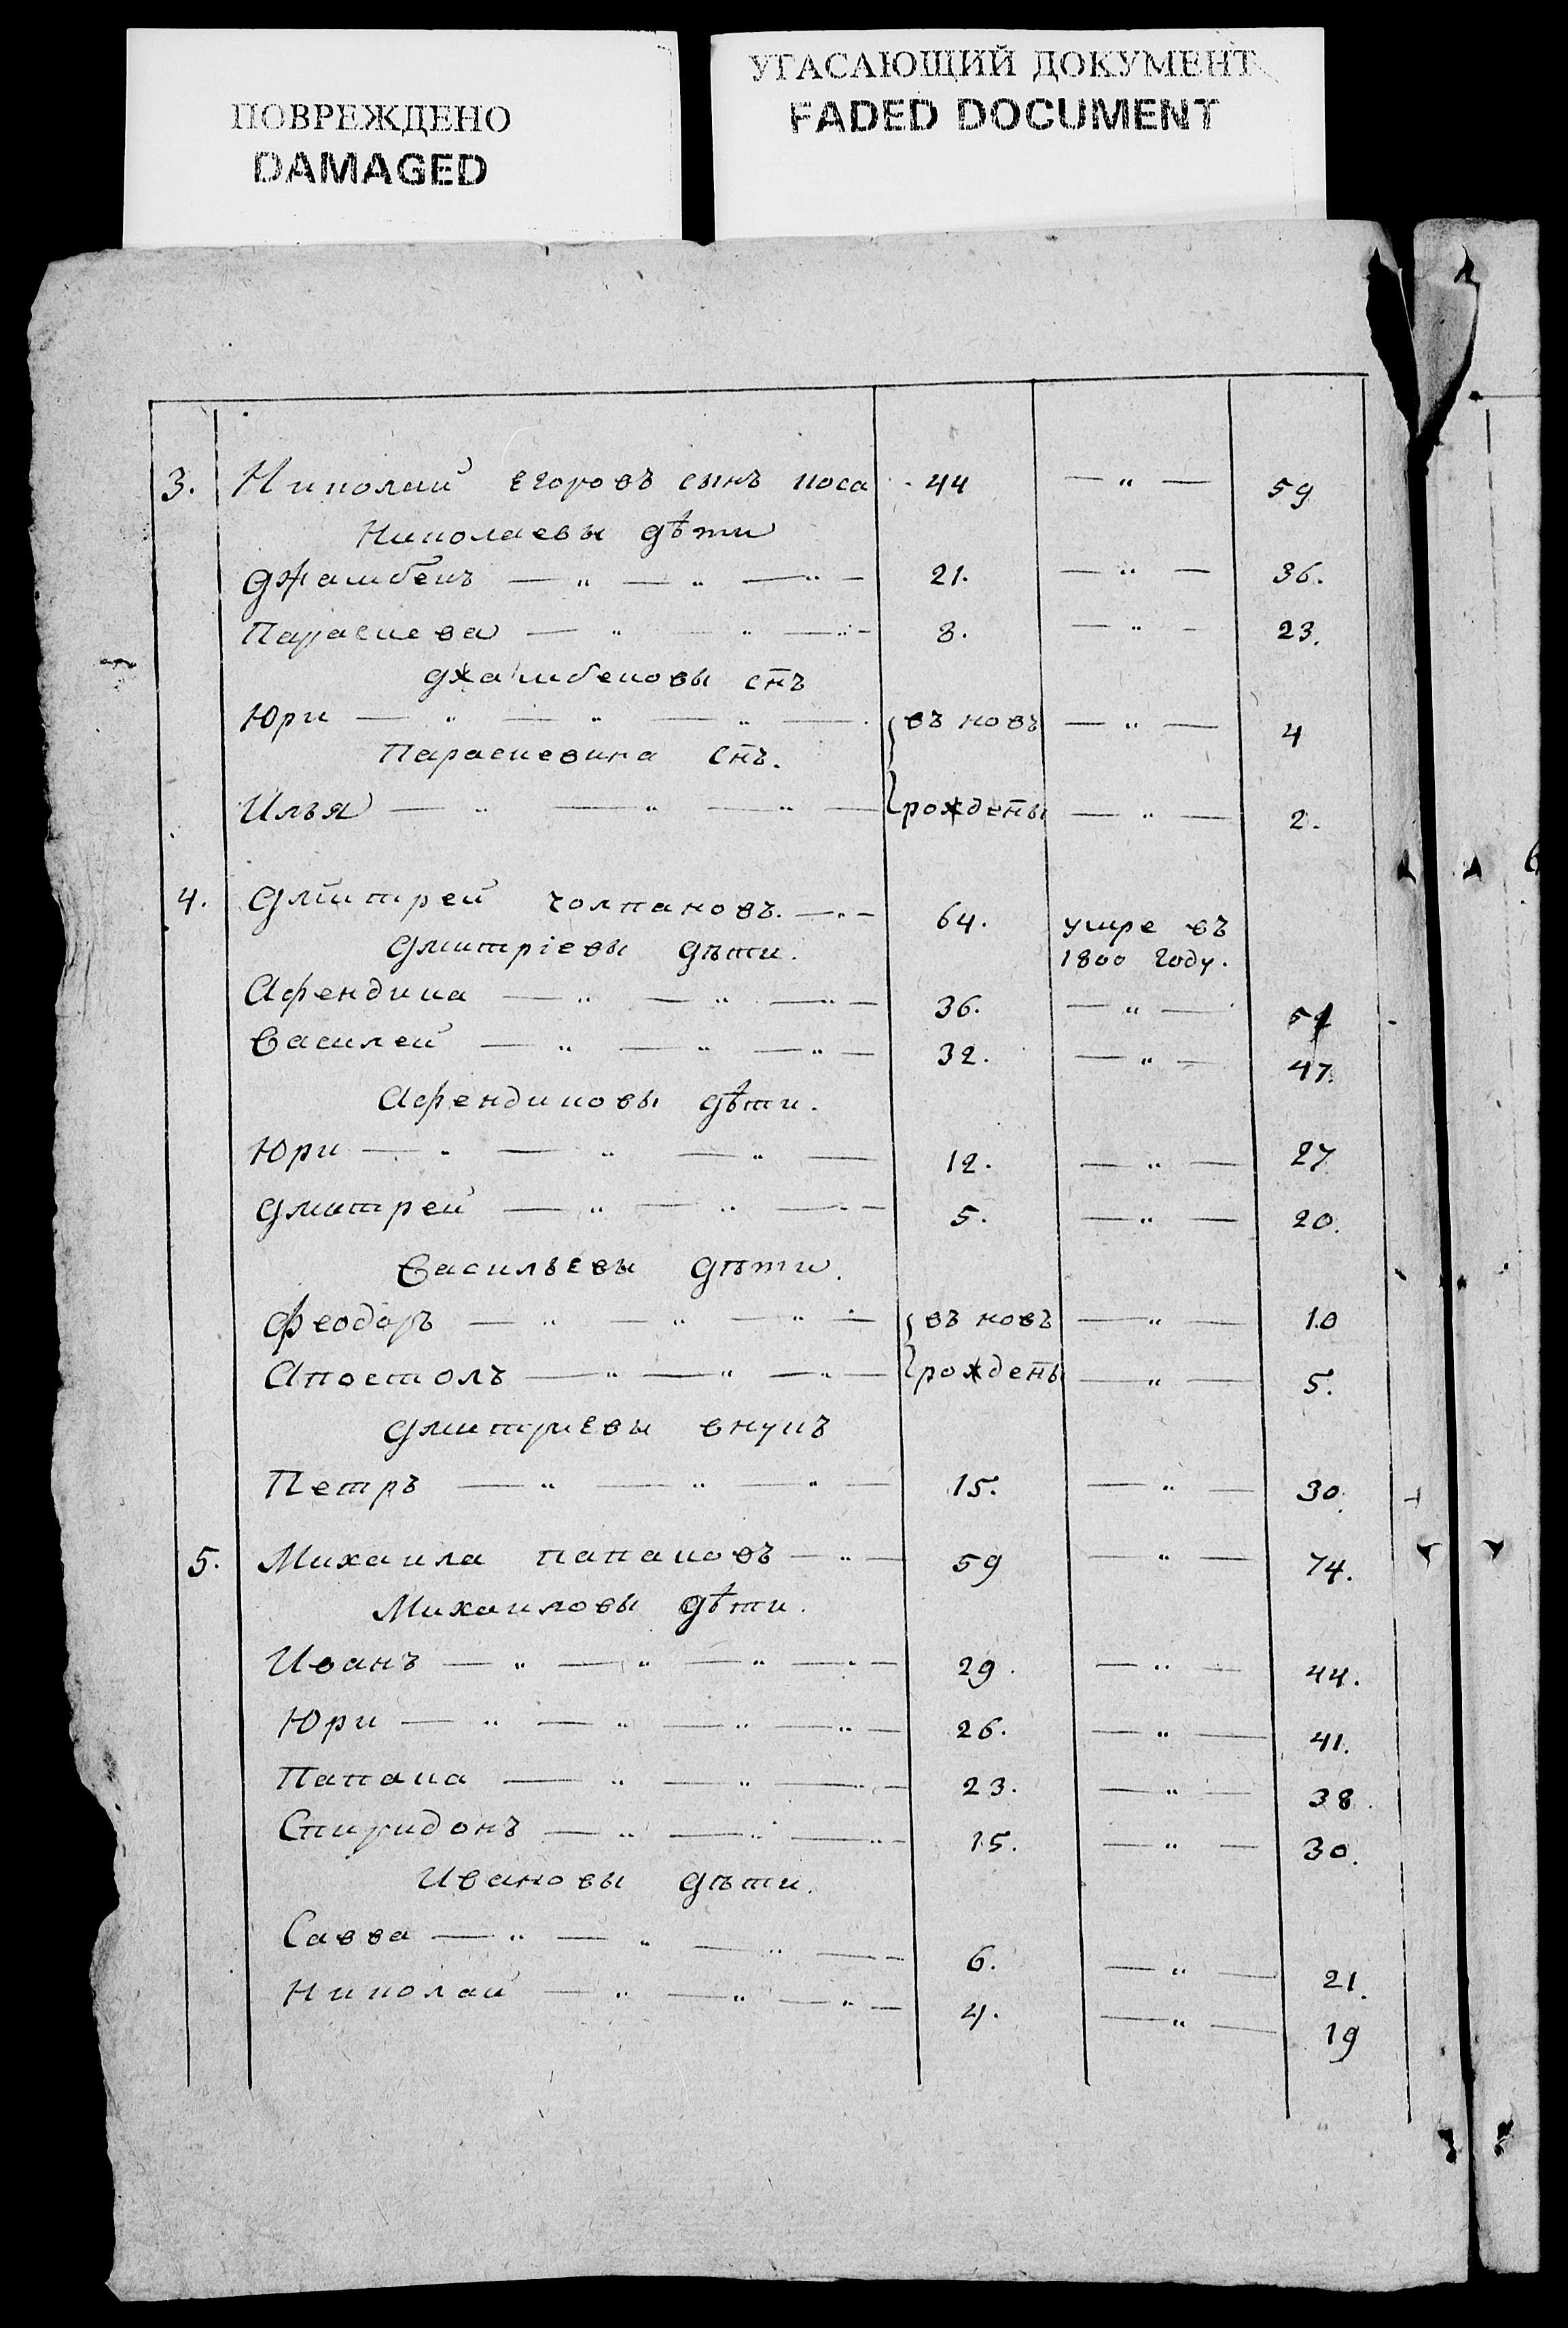 ПОВРЕЖДЕНО
DAMAGED
УГАСАЮЩИЙ ДОКУМЕНТ
FADED DOCUMENT
3. Николай Егоровъ сынъ коса 44 — " — 59
Николаевы дѣти
Джамбекъ — " — " — " — 21. — " — 36.
Параскева — " — " — " — 8. — " — 23.
джамбековы сн̄ъ
Юри — " — " — " — въ новъ — " — 4
Параскевина сн̄ъ.
Илья — " — " — " — рожде̄ны — " — 2.
4. Дмитрей чолпановъ. — " — 64. умре въ
Дмитріевы дѣти. 1800 году.
Афендика — " — " — " — 36. — " — 51
Василей — " — " — " — 32. — " — 47.
Афендиковы дѣти.
Юри — " — " — " — 12. — " — 27
Дмитрей — " — " — " — 5. — " — 20.
Васильевы дѣти.
Феодоръ — " — " — " — въ новъ — " — 10
Апостолъ — " — " — " — рожде̄ны — " — 5.
Дмитриевы внукъ
Петръ — " — " — " — 15. — " — 30.
5. Михаила папаковъ — " — 59 — " — 74.
Михаиловы дѣти.
Иванъ — " — " — " — " — 29. — " — 44.
Юри — " — " — " — " — 26. — " — 41.
Папака — " — " — " — 23. — " — 38.
Спиридонъ — " — " — " — 15. — " — 30.
Ивановы дѣти.
Савва — " — " — " — 6. — " — 21.
Николай — " — " — " — 4. — " — 19